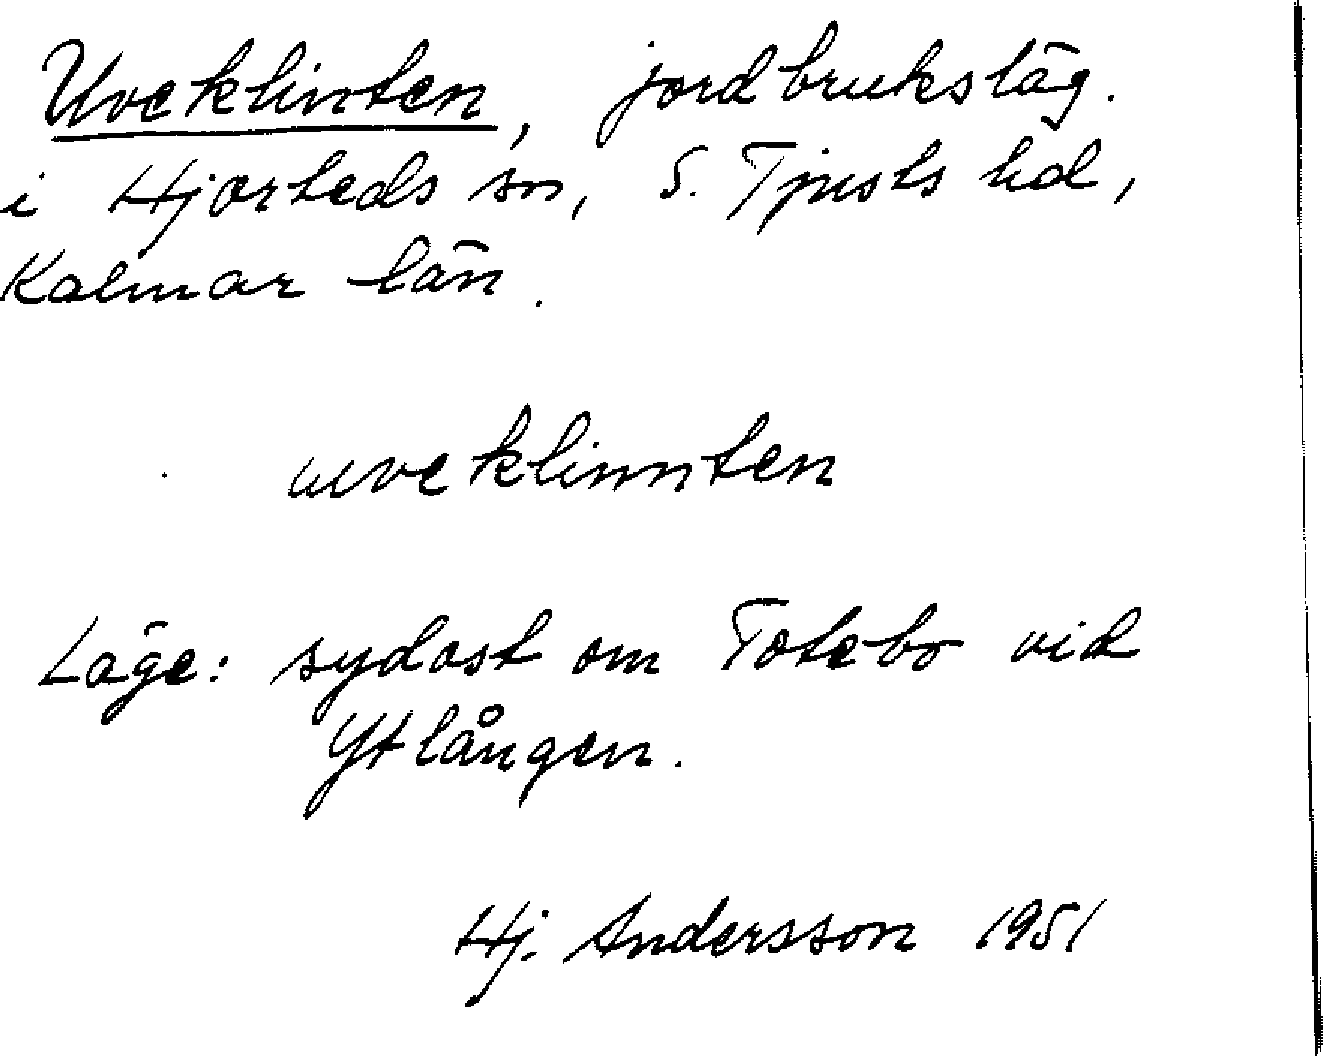 Uveklinten, jordbruksläg.
i Hjorteds sn, S. Tjusts hd,
Kalmar län.
uveklinnten
Läge: sydost om Totebo vid
Ytlången.
Hj. Andersson 1951